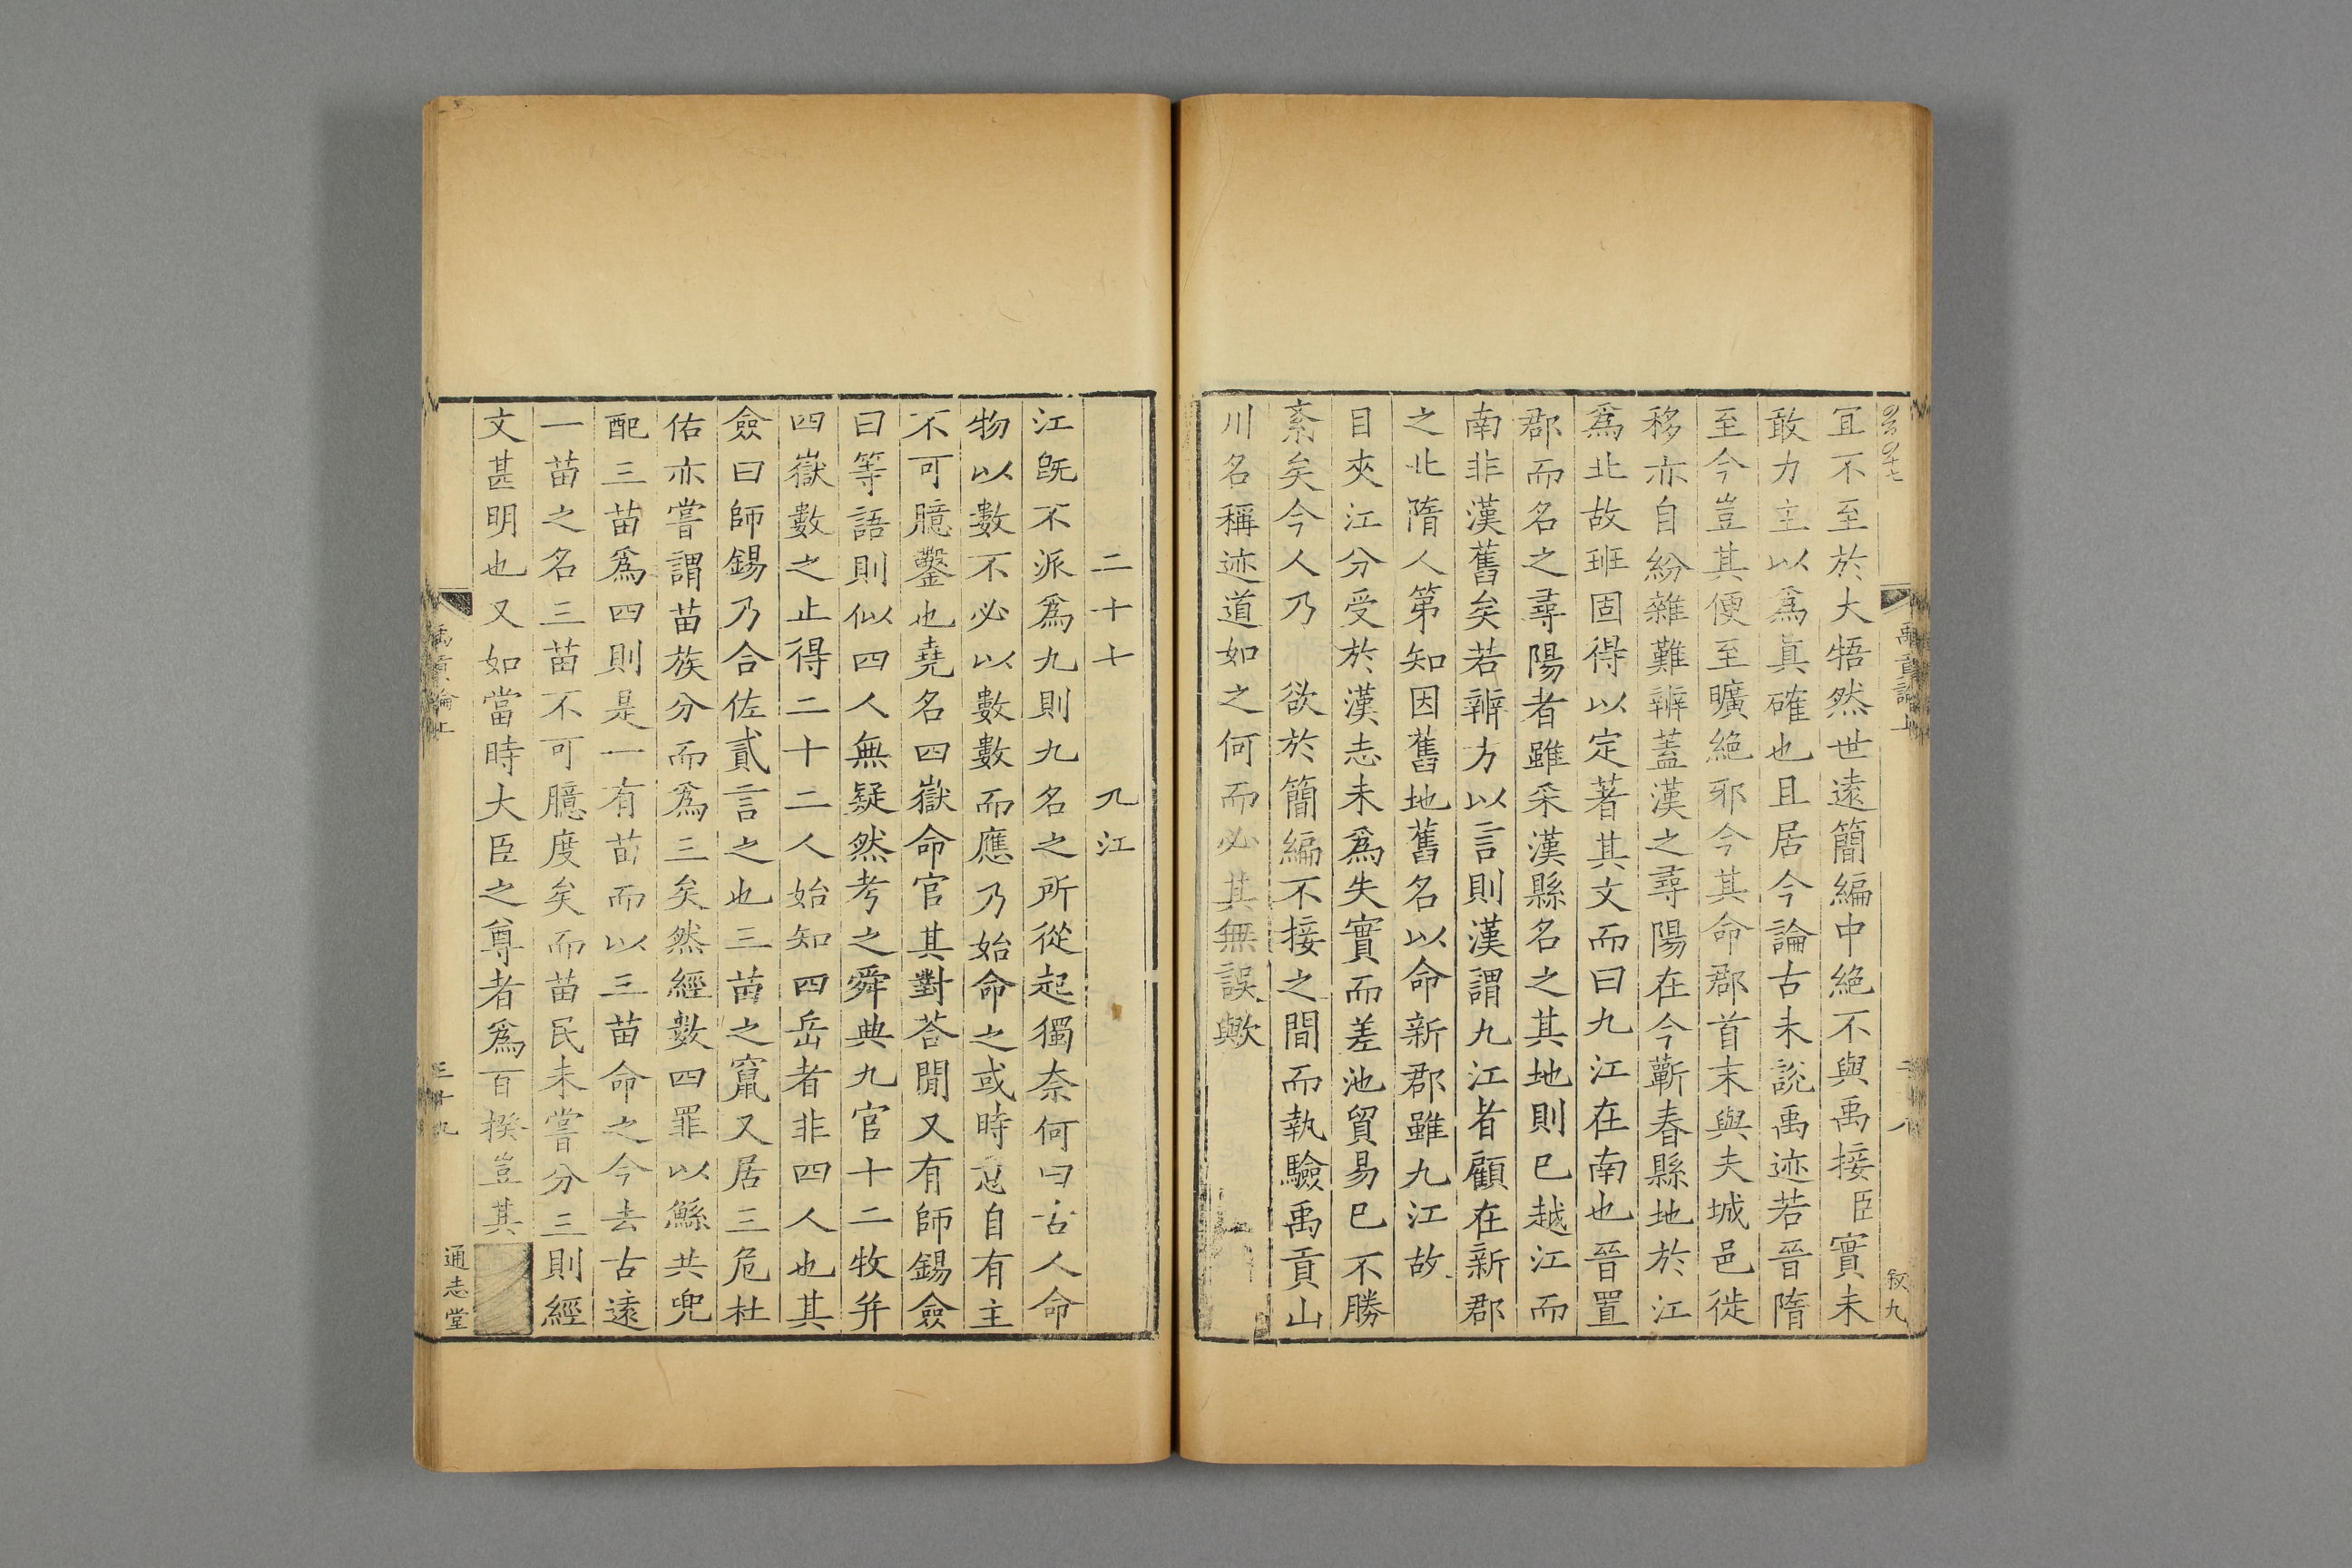 禹貢論上
叙九
宜不至於大牾然世遠簡編中絶不與禹接臣實未
敢力主以爲真確也且居今論古未説禹迹若晉隋
至今豈其便至曠絶邪今其命郡首末與夫城邑徙
移亦自紛雜難辨蓋漢之尋陽在今蘄春縣地於江
爲北故班固得以定著其文而曰九江在南也晉置
郡而名之尋陽者雖采漢縣名之其地則已越江而
南非漢舊矣若辨方以言則漢謂九江者顧在新郡
之北隋人第知因舊地舊名以命新郡雖九江故
目夾江分受於漢志未爲失實而差池貿易已不勝
紊矣今人乃 欲於簡編不接之間而執驗禹貢山
川名稱迹道如之何而必其無誤歟
二十七 九江
江既不派爲九則九名之所從起獨奈何曰古人命
物以數不必以數數而應乃始命之或時意自有主
不可臆鑿也堯名四嶽命官其對荅閒又有師錫僉
曰等語則似四人無疑然考之舜典九官十二牧并
四嶽數之止得二十二人始知四岳者非四人也其
僉曰師錫乃合佐貳言之也三苗之竄又居三危杜
佑亦嘗謂苗族分而爲三矣然經數四罪以鯀共兜
配三苗爲四則是一有苗而以三苗命之今去古遠
一苗之名三苗不可臆度矣而苗民未嘗分三則經
文甚明也又如當時大臣之尊者爲百揆豈其
禹貢論上
三十九
通志堂